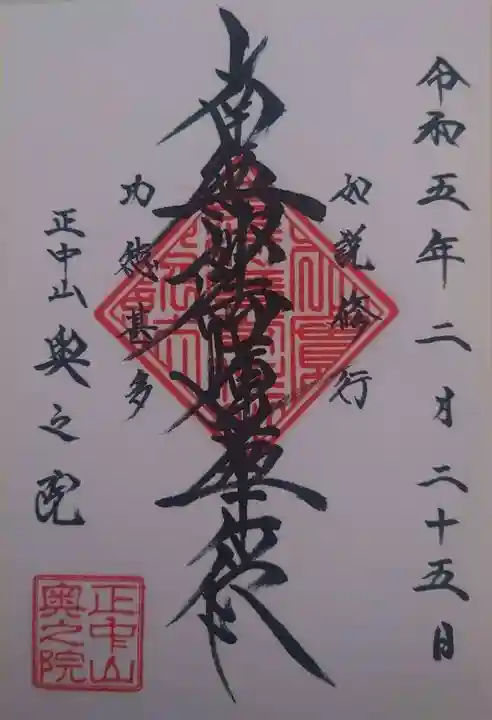 令和五年二月二十五日
如説修行
南無妙法蓮華経
功徳甚多
正中山奥之院
正中山
奥之院